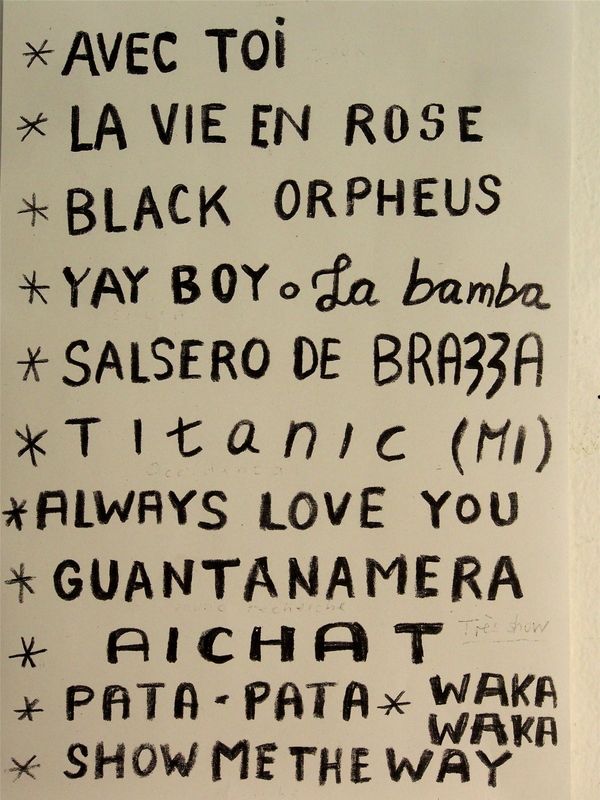 * AVEC TOi
* LA VIE EN ROSE
* BLACK ORPHEUS
* YAY BOY o La bamba
* SALSERO DE BRAZZA
* Titanic (MI)
* ALWAYS LOVE YOU
* GUANTANAMERA
* AICHAT Très show
* PATA-PATA * WAKA WAKA
* SHOW ME THE WAY